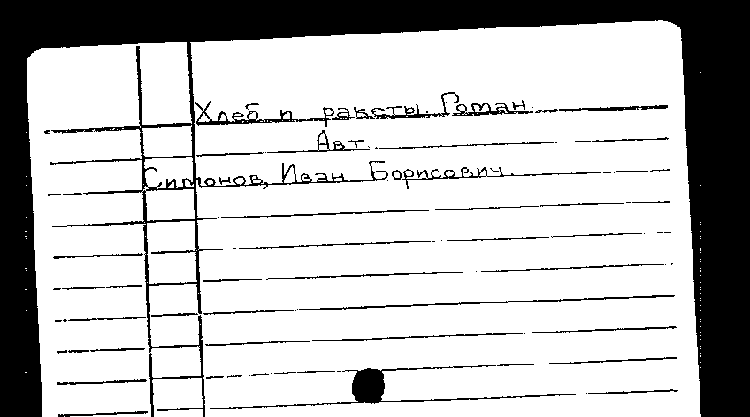 Хлеб и ракеты. Роман.
Авт.
Симонов, Иван Борисович.